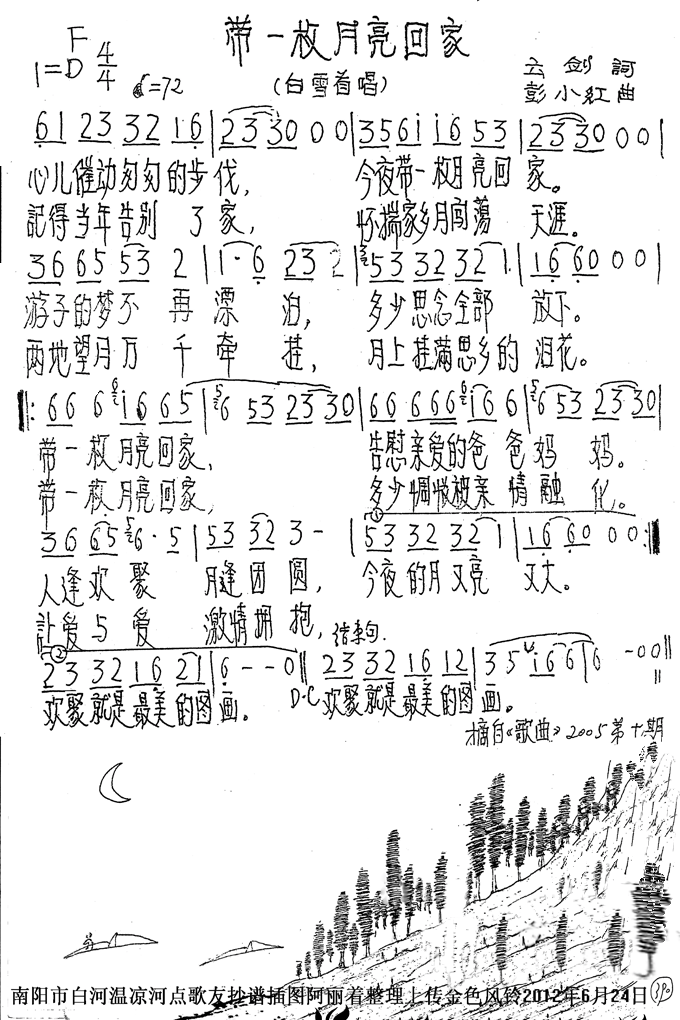 带一枚月亮回家
F
1=D 4/4 ♩=72
(白雪首唱)
云剑詞
彭小红曲
61 23 32 16 | 23 30 0 0 | 3561 16 53 | 23 30 0 0 |
心儿催动匆匆的步伐, 今夜带一枚月亮回家。
記得当年告别了家, 怀揣家乡月闯荡天涯。
36 65 53 2 | 1· 6 23 2 | 53 32 32 1 | 16 60 0 0 |
游子的梦不再漂泊, 多少思念全部放下。
两地望月万千牵挂, 月上挂满思乡的泪花。
66 6 i6 65 | 6 53 23 30 | 66 666 i6 6 | 6 53 23 30 |
带一枚月亮回家, 告慰亲爱的爸爸妈妈。
带一枚月亮回家, 多少惆怅被亲情融化。
36 65 6· 5 | 53 32 3 - | 53 32 32 1 | 16 60 0 0 :||
人逢欢聚月逢团圆, 今夜的月又亮又大。
計爱与爱激情拥抱,
结束句.
23 32 16 21 | 6 - - 0 || 23 32 16 12 | 3 5 i6 6 | 6 - 0 0 ||
欢聚就是最美的图画。 D.C 欢聚就是最美的图画。
摘自《歌曲》2005第十期
南阳市白河温凉河点歌友抄谱插图阿丽着整理上传金色风铃2012年6月24日 390